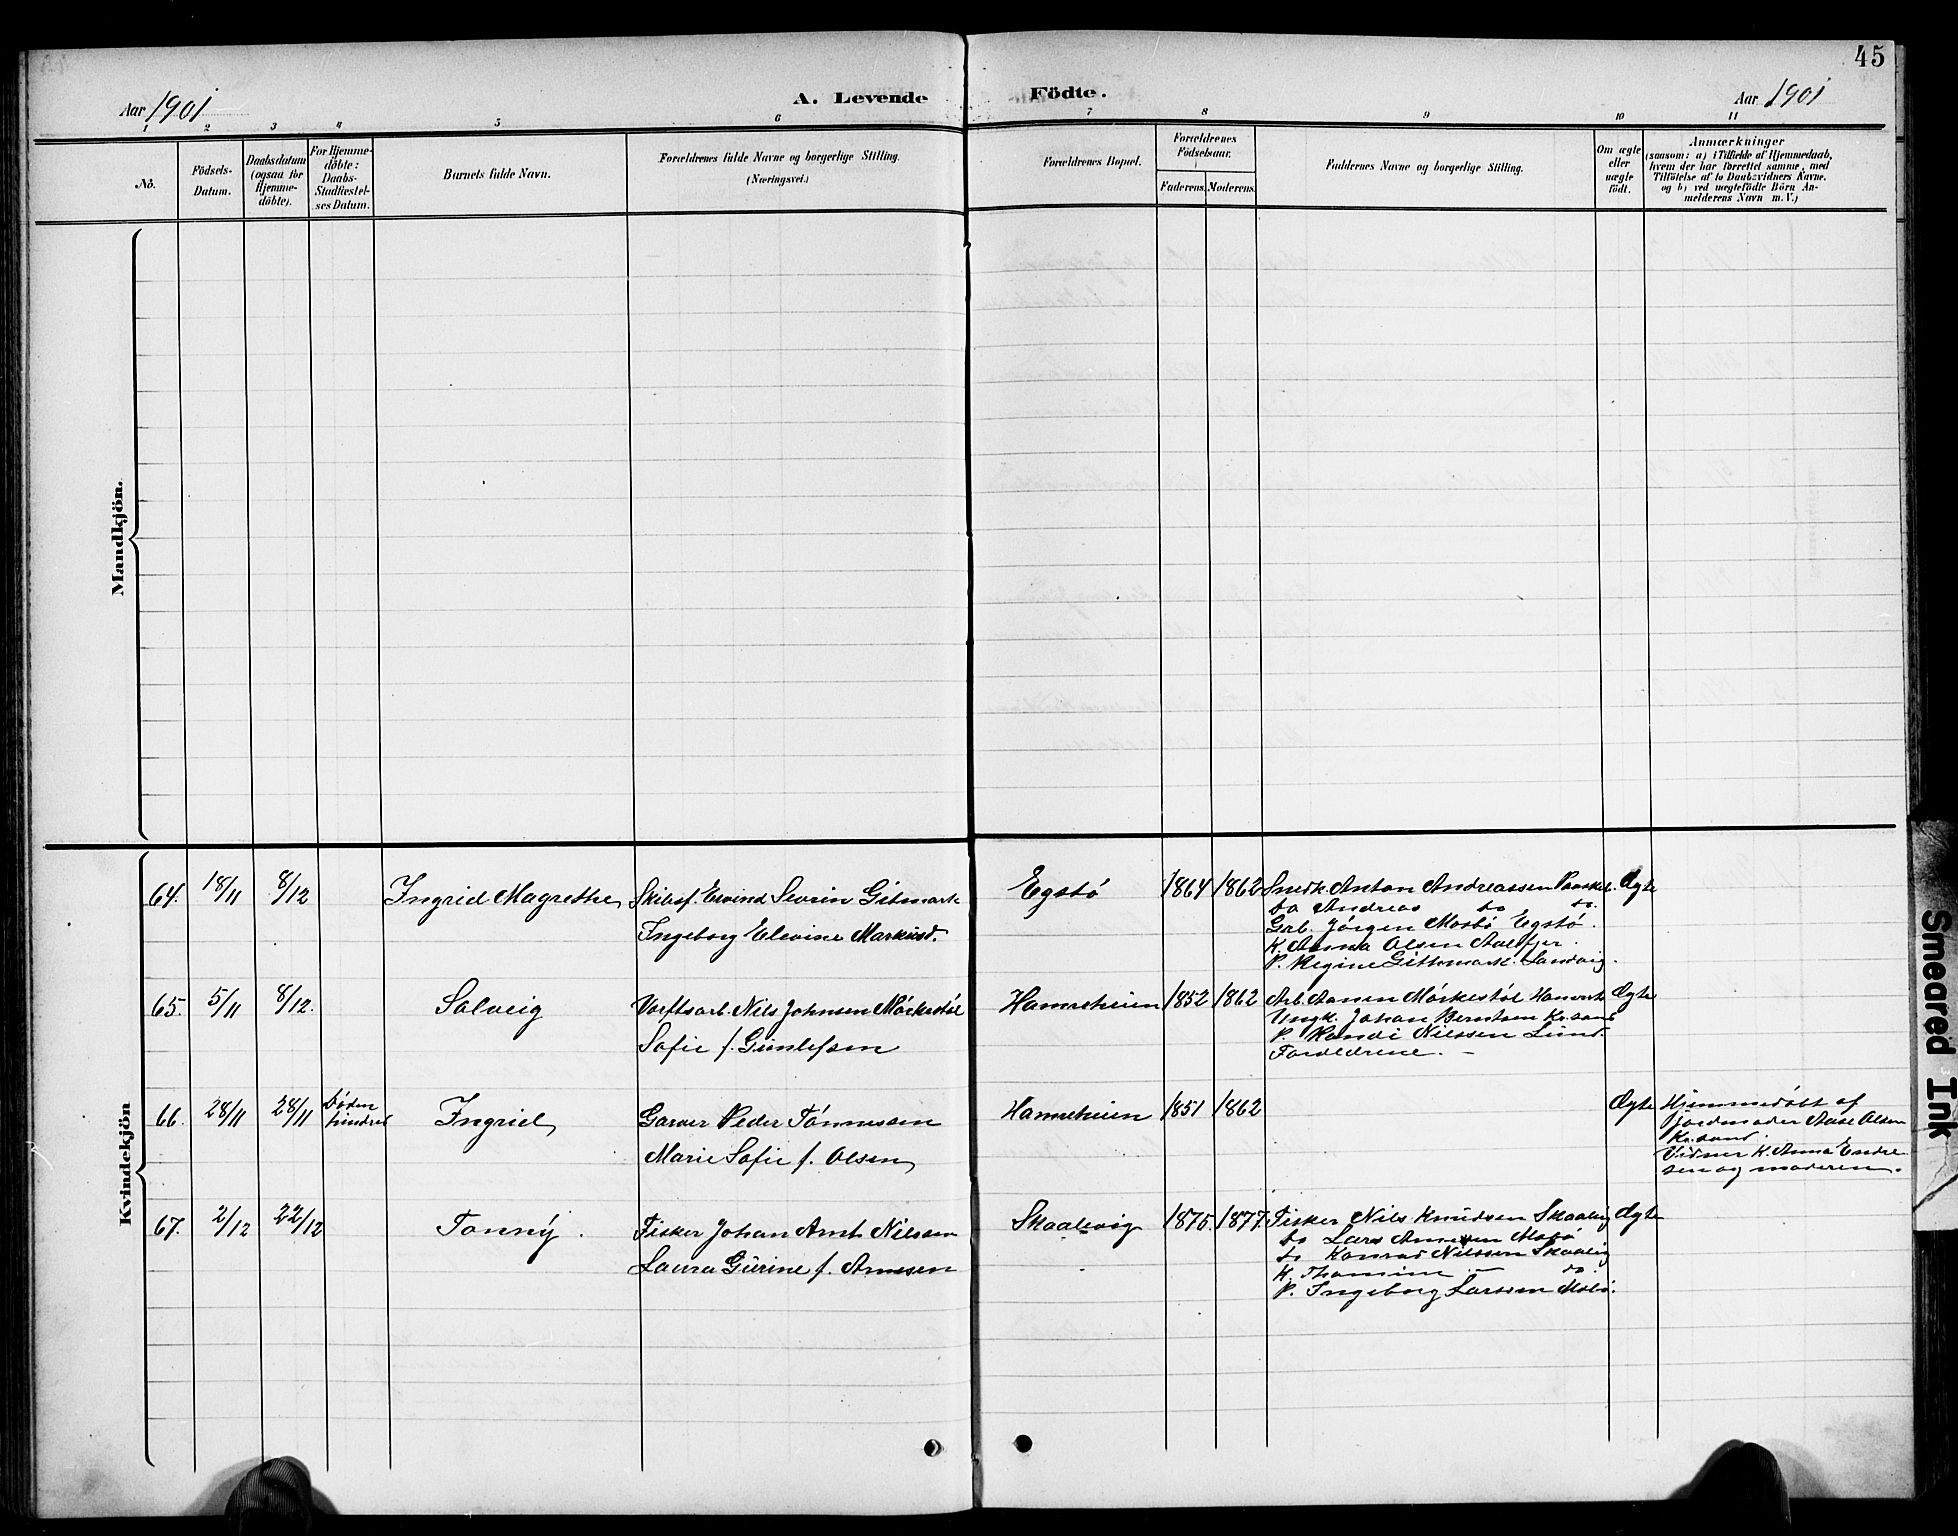 45
Aar 1901
A. Levende Födte.
Aar 1901
1 2 3 4 5 6 7 8 9 10 11
No.
Födsels-Datum.
Daabsdatum (ogsaa for Hjemme-döbte).
For Hjemme-döbte: Daabs-Stadfæstel-ses Datum.
Barnets fulde Navn.
Forældrenes fulde Navne og borgerlige Stilling.
(Næringsvei.)
Forældrenes Bopæl.
Forældrenes Födselsaar.
Faderens. Moderens.
Faddernes Navne og borgerlige Stilling.
Om ægte eller uægte födt.
Anmærkninger
(saasom: a) i Tilfælde af Hjemmedaab,
hvem der har forrettet samme, med
Tilföielse af to Daabsvidners Navne,
og b) ved uægtefödte Börn An-
melderens Navn m. V.)
Mandkjön.
Kvindekjön
64. 18/11 8/12 Ingrid Magrethe
Skibsf. Eivind Severin Gitmark
Ingeborg Elevine Markusd.
Egstö 1864 1862
Snedk. Anton Andreassen
do Andreas do do.
Grb. Jörgen Mosbö Egstö.
K. Anna Olsen
P. Regine Gitmark Sandvig.
Ægte
65. 5/11 8/12. Solveig
Værftsarb. Nils Johnsen Mörkestöl
Sofie f. Gunlefsen
Hamreheien 1852 1862
Arb. Aanen Mörkestöl
Ungk. Johan Berntsen Kr.sand
P. Randi Nilssen Lund.
Forældrene. –
Ægte
66. 28/11 28/11 Döden hindret Ingrid
Garver Peder Tönnesen
Marie Sofie f. Olsen
Hamreheien 1851 1862
Ægte
Hjemmedöbt af
Jordmoder Aase Olsen
Kr.sand.
Vidner K. Anna Endre-
sen og moderen.
67. 2/12 22/12 Tonny.
Fisker Johan Arnt Nilssen
Laura Gurine f. Arnesen
Skaalevig 1875. 1877.
Fisker Nils Knudsen Skaalvig
do Lars Mebö
do Konrad Nilssen Skaalvig
K. Thomine – do.
P. Ingeborg Larssen Mebö.
Ægte
Smeared Ink